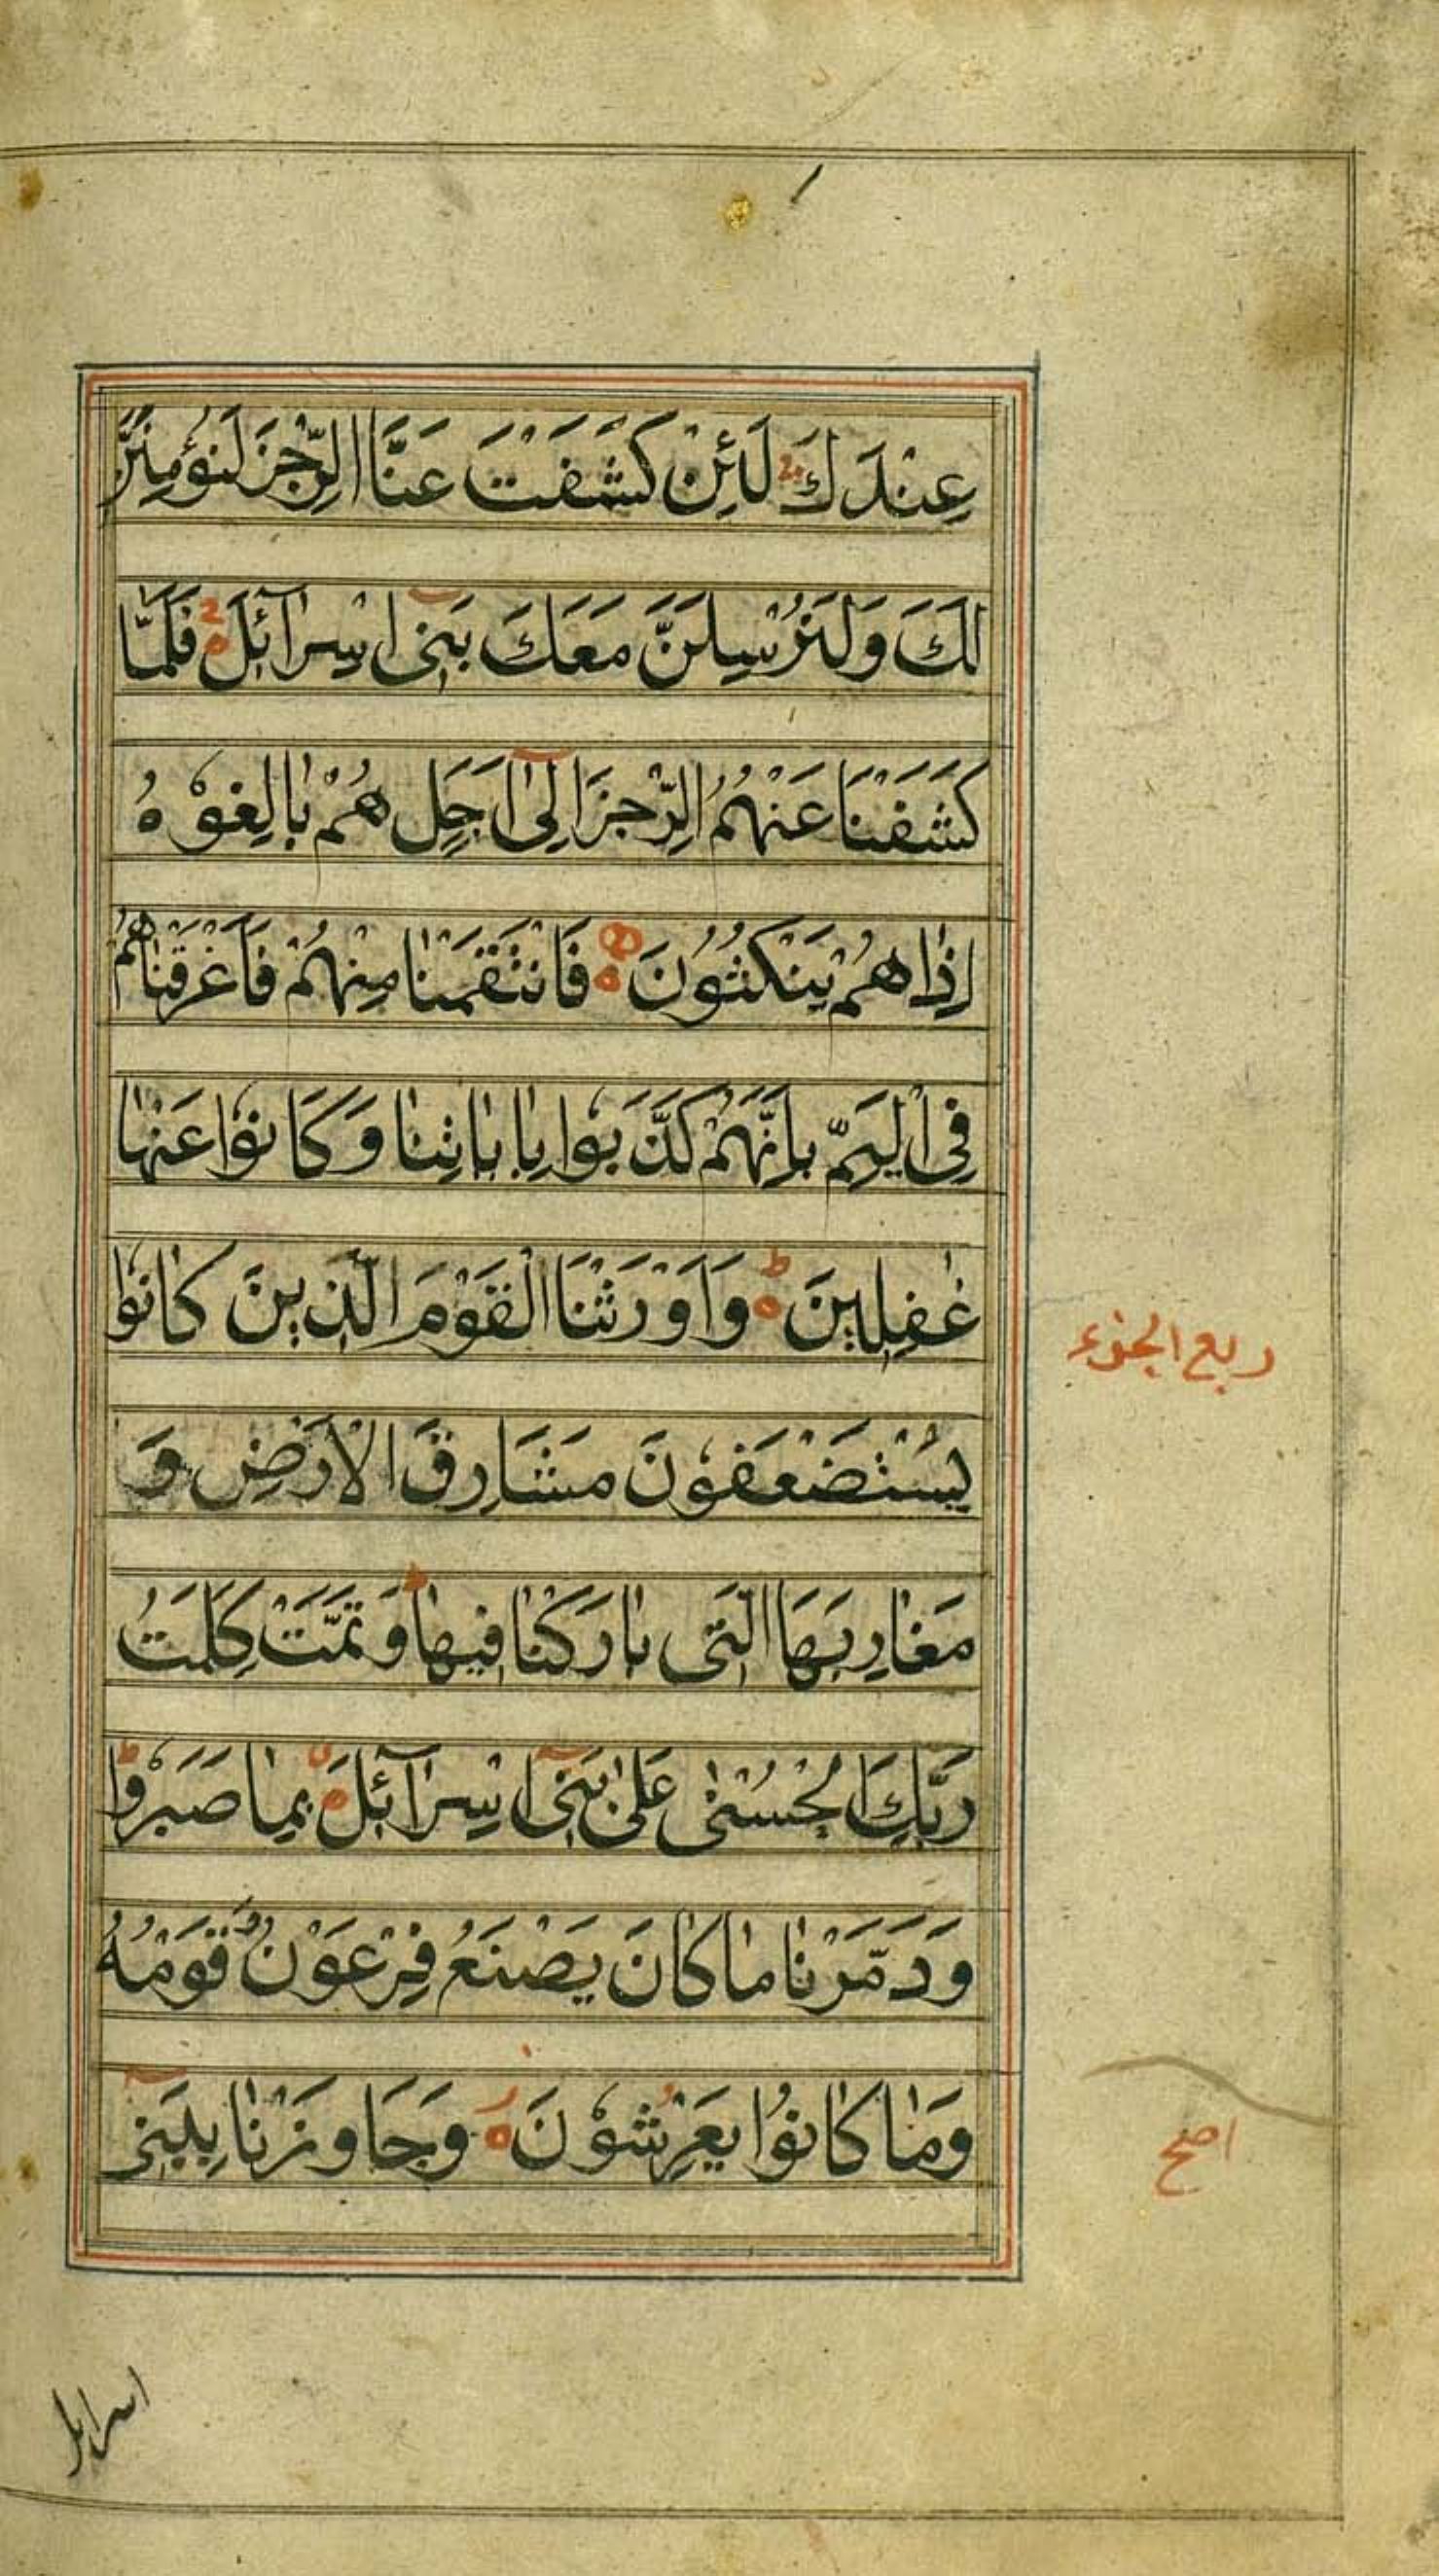 عِنْدَكَ لَئِنْ كَشَفْتَ عَنَّا الرِّجْزَ لَنُؤْمِنَنَّ
لَكَ وَلَنُرْسِلَنَّ مَعَكَ بَنِىٓ اِسْرَآئِلَ ۝ فَلَمَّا
كَشَفْنَا عَنْهُمُ الرِّجْزَ اِلىٰٓ اَجَلٍ هُمْ بَالِغُوْهُ
اِذٰا هُمْ يَنْكُثُوْنَ ۝ فَانْتَقَمْنٰا مِنْهُمْ فَاَغْرَقْنٰاهُمْ
فِى الْيَمِّ بِاَنَّهُمْ كَذَّبُوا بِاٰيٰاتِنٰا وَكَانُوْا عَنْهٰا
غٰفِلِينَ ۝ وَاَوْرَثْنَا الْقَوْمَ الَّذِينَ كٰانُوْا
يُسْتَضْعَفُوْنَ مَشَارِقَ الْاَرْضِ وَ
مَغٰارِبَهَا الَّتِى بٰارَكْنٰا فِيهٰا ط وَتَمَّتْ كَلِمَتُ
رَبِّكَ الْحُسْنٰى عَلىٰ بَنِىٓ اِسْرٰٓائِلَ ۝ بِمٰا صَبَرُوْا ط
وَدَمَّرْنٰا مٰا كٰانَ يَصْنَعُ فِرْعَوْنُ وَ قَوْمُهُ
وَمٰا كٰانُوْا يَعْرِشُوْنَ ۝ وَجَاوَزْنٰا بِبَنِىٓ
ربع الجزء
اصح
اسرايل